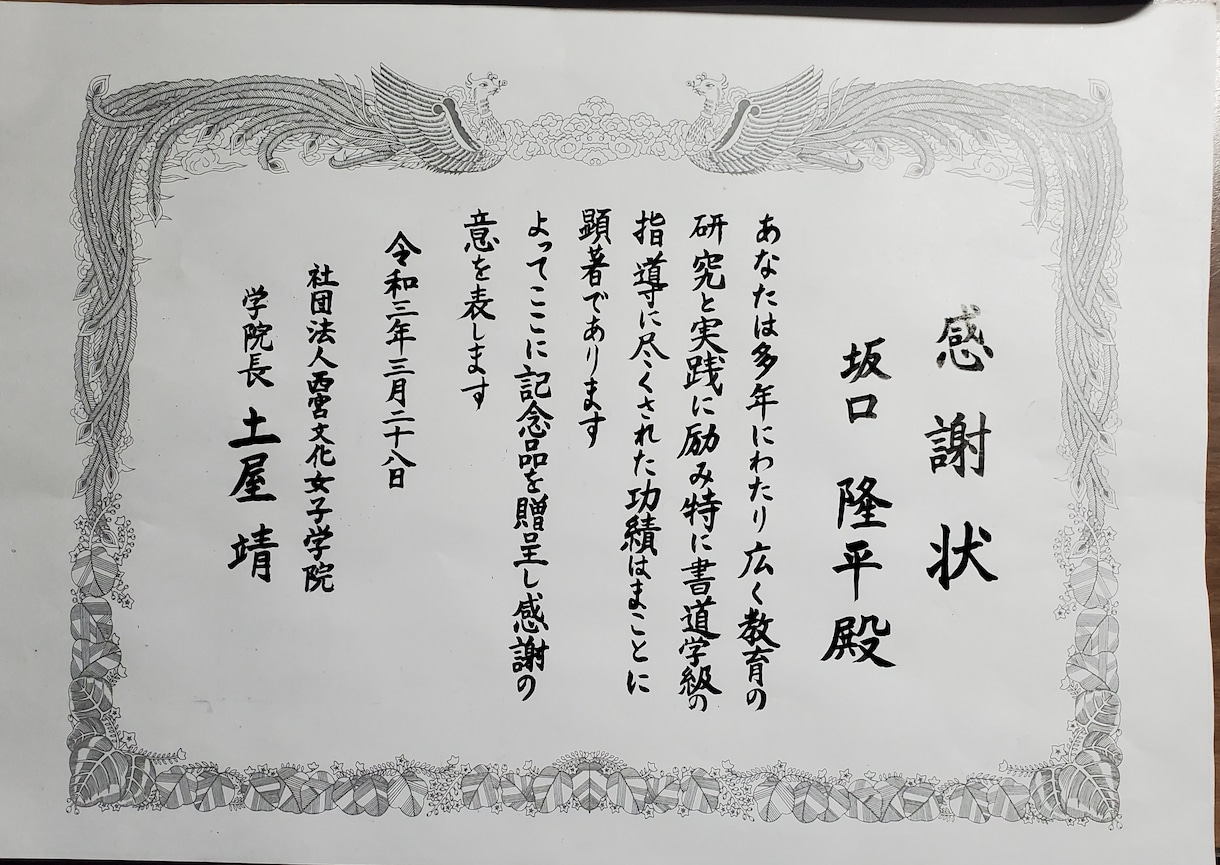 感謝状
坂口 隆平殿
あなたは多年にわたり広く教育の
研究と実践に励み特に書道学級の
指導に尽くされた功績はまことに
顕著であります
よってここに記念品を贈呈し感謝の
意を表します
令和三年三月二十八日
社団法人西宮文化女子学院
学院長 土屋 靖